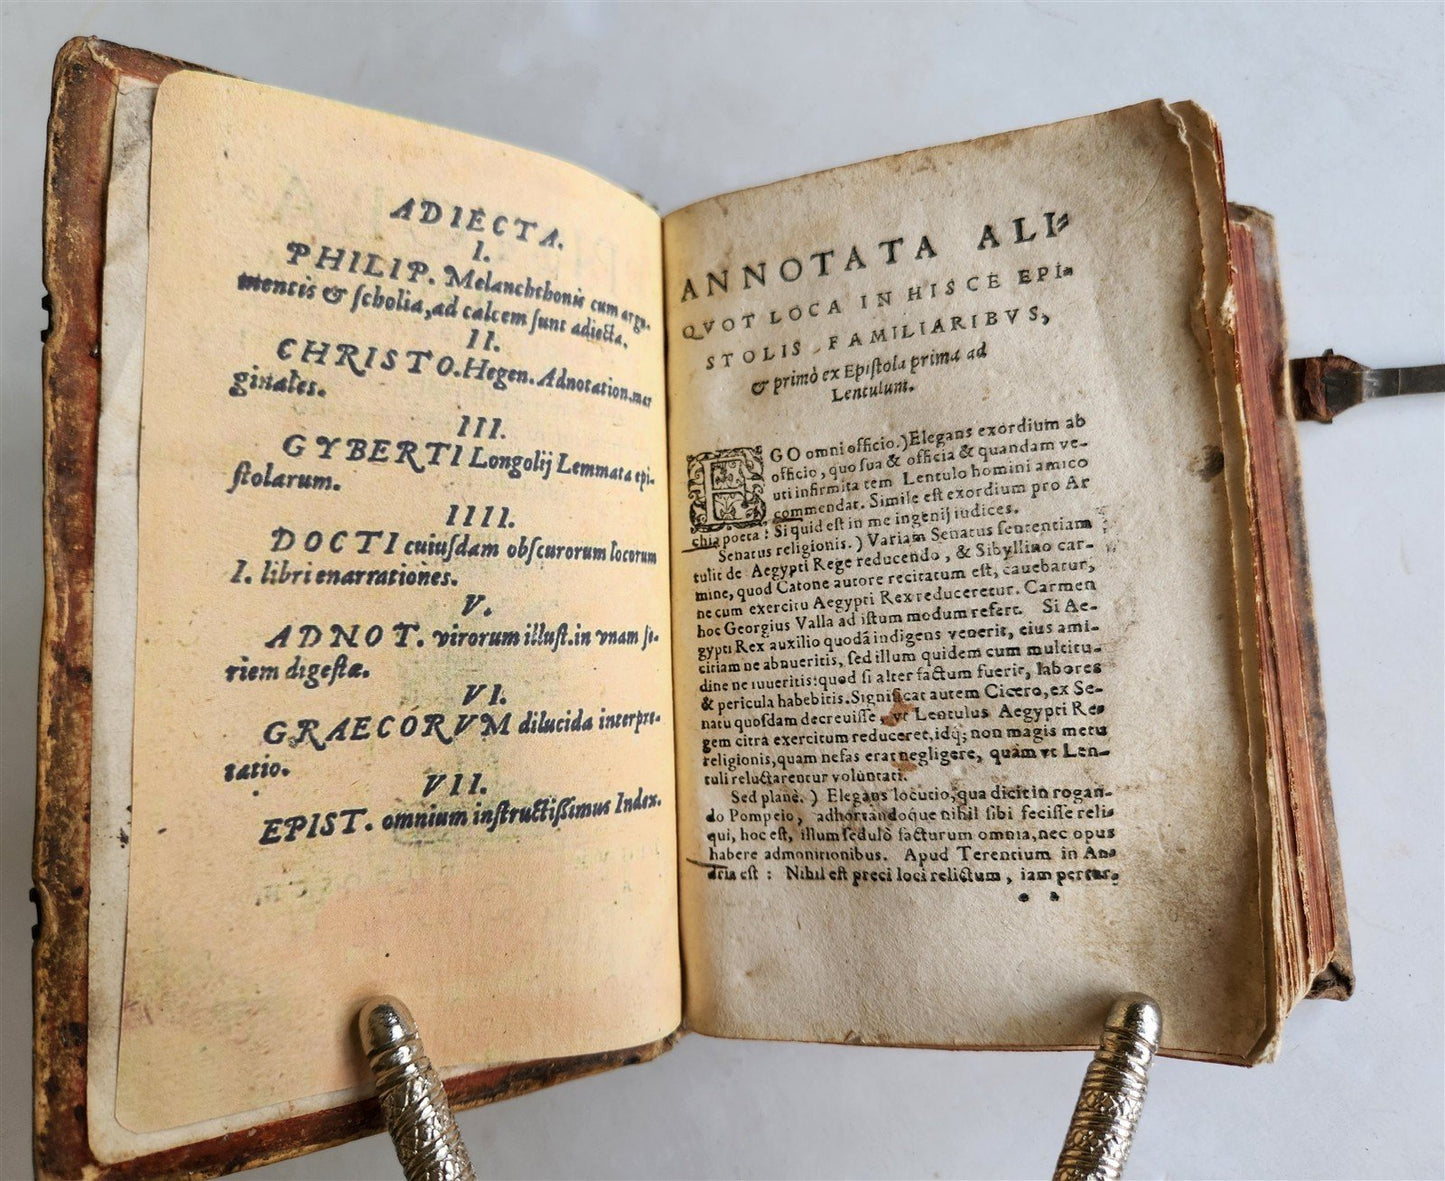 ADIECTA.
I.
PHILIP. Melanchthonis cum argu-
mentis & ſcholia, ad calcem ſunt adiecta.
II.
CHRISTO. Hegen. Adnotation. mar
ginales.
III.
GYBERTI Longolij Lemmata epi-
ſtolarum.
IIII.
DOCTI cuiuſdam obſcurorum locorum
I. libri enarrationes.
V.
ADNOT. virorum illuſt. in vnam ſe-
riem digeſtæ.
VI.
GRAECORVM dilucida interpre-
tatio.
VII.
EPIST. omnium inſtructiſsimus Index.
ANNOTATA ALI-
QVOT LOCA IN HISCE EPI-
STOLIS FAMILIARIBVS,
& primò ex Epiſtola prima ad
Lentulum.
EGO omni officio.) Elegans exordium ab
officio, quo ſua & officia & quandam ve-
uti infirmitatem Lentulo homini amico
commendat. Simile eſt exordium pro Ar
chia poeta: Si quid eſt in me ingenij iudices.
Senatus religionis.) Variam Senatus ſententiam
tulit de Aegypti Rege reducendo, & Sibyllino car-
mine, quod Catone autore recitatum eſt, cauebatur,
ne cum exercitu Aegypti Rex reduceretur. Carmen
hoc Georgius Valla ad iſtum modum refert. Si Ae-
gypti Rex auxilio quodã indigens venerit, eius ami-
citiam ne abnueritis, ſed illum quidem cum multitu-
dine ne iuueritis: quod ſi alter factum fuerit, labores
& pericula habebitis. Significat autem Cicero, ex Se-
natu quoſdam decreuiſſe, vt Lentulus Aegypti Re-
gem citrà exercitum reduceret, idq; non magis metu
religionis, quam nefas erat negligere, quàm vt Len-
tuli reluctarentur voluntati.
Sed planè.) Elegans locutio, qua dicit in rogan-
do Pompeio, adhortandoque nihil ſibi feciſſe reli-
qui, hoc eſt, illum ſedulò facturum omnia, nec opus
habere admonitionibus. Apud Terentium in An-
dria eſt: Nihil eſt preci loci relictum, iam pertur-